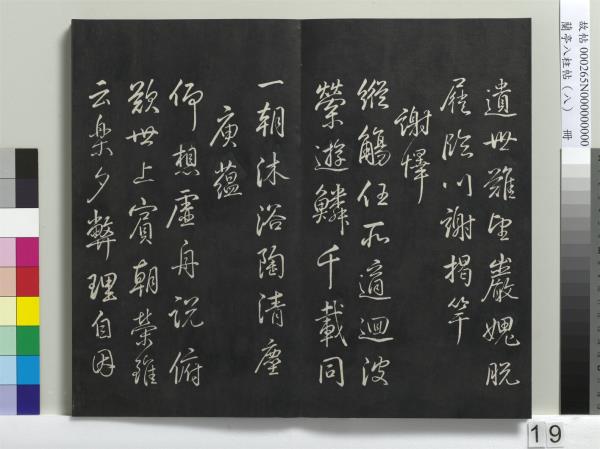 遺世難望巖媿脫
屣臨川謝揭竿
謝懌
縱觴任所適迴波
縈遊鱗千載同
一朝沐浴陶清塵
庾蘊
仰想虛舟說俯
歎世上賓朝榮雖
云樂夕弊理自因
故帖 000265N000000000
蘭亭八柱帖(八) 冊
19